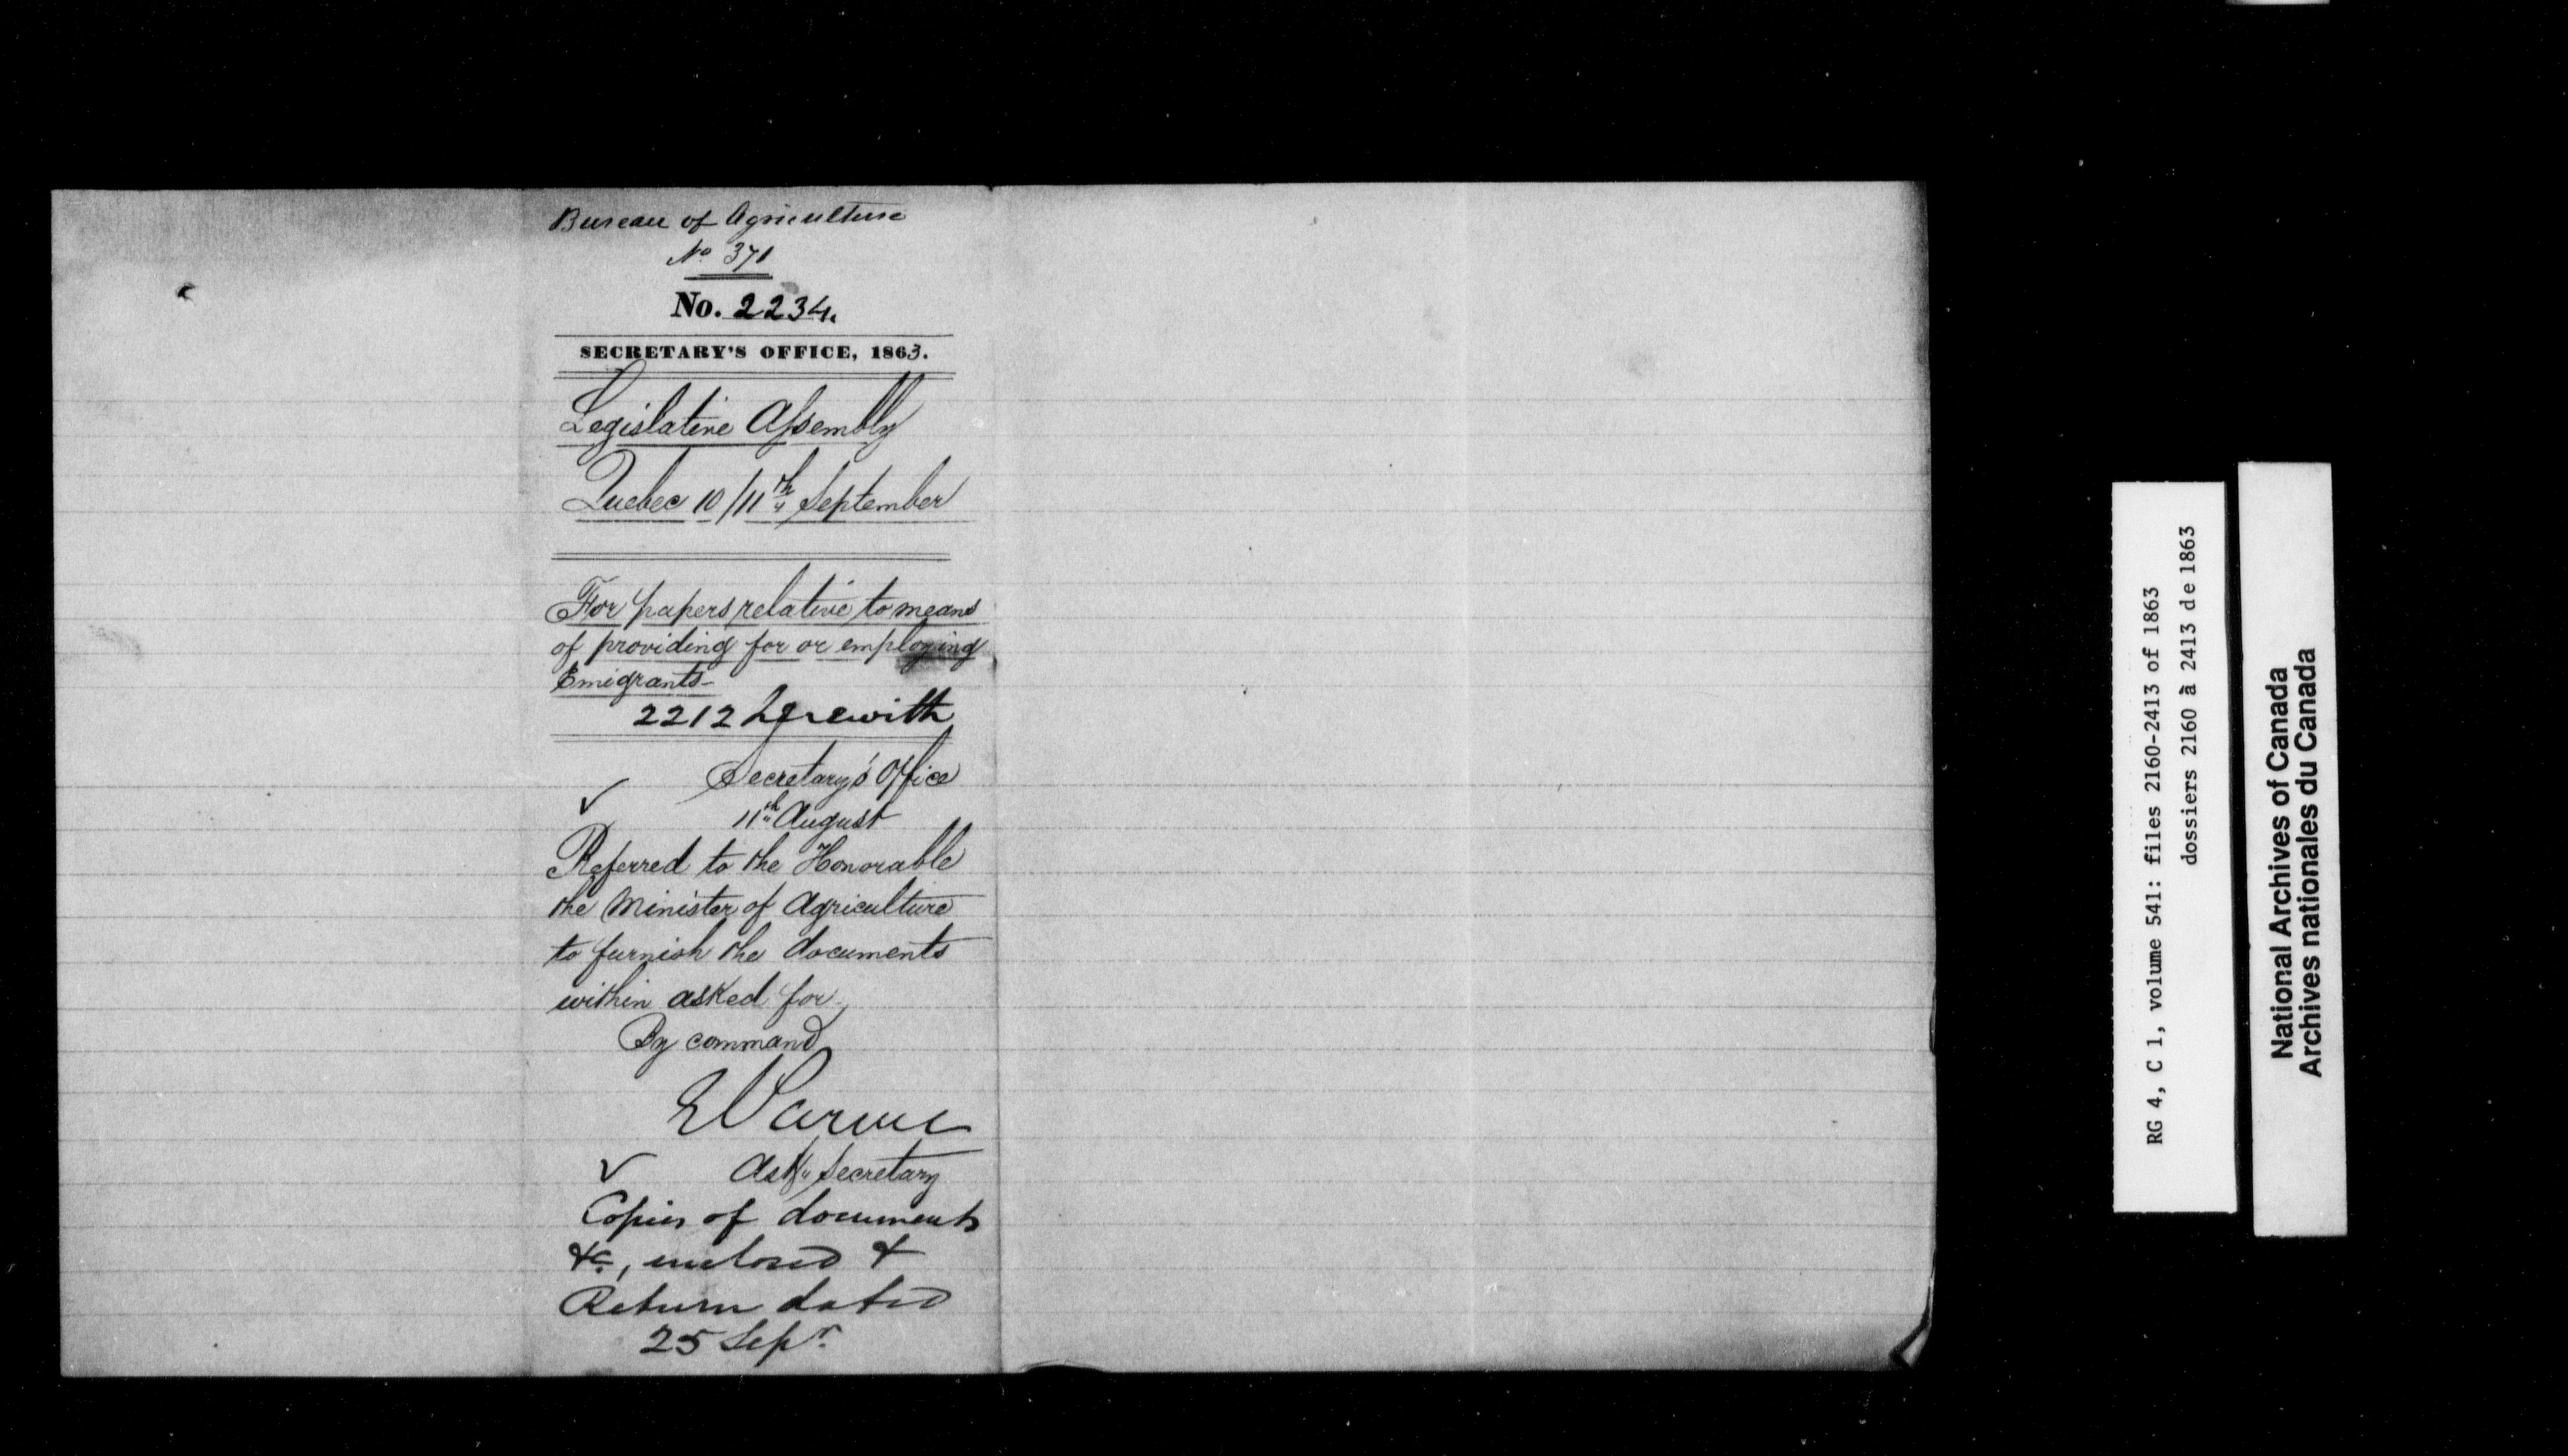 Bureau of Agriculture
No 371
No. 2234.
SECRETARY'S OFFICE, 1863.
Legislative Assembly
Quebec 10/11th September
For papers relative to means
of providing for or employing
Emigrants-
2212 herewith
Secretary's Office
11th August
Referred to the Honorable
the Minister of Agriculture
to furnish the documents
within asked for.
By command
E Parent
Asst. Secretary
Copies of documents
&c., enclosed &
Return dated
25 Sepr.
RG 4, C 1, volume 541: files 2160-2413 of 1863
dossiers 2160 à 2413 de 1863
National Archives of Canada
Archives nationales du Canada